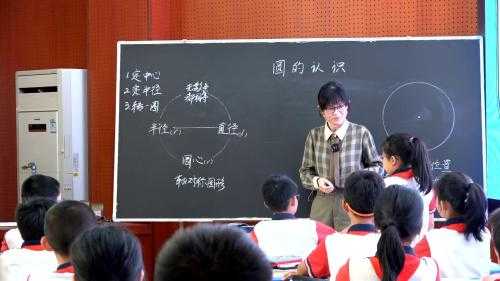 圆的认识
1.定中心
2.定半径
3.转一圆
无数条
都相等
半径(r)
直径(d)
圆心(o)
轴对称图形
位置